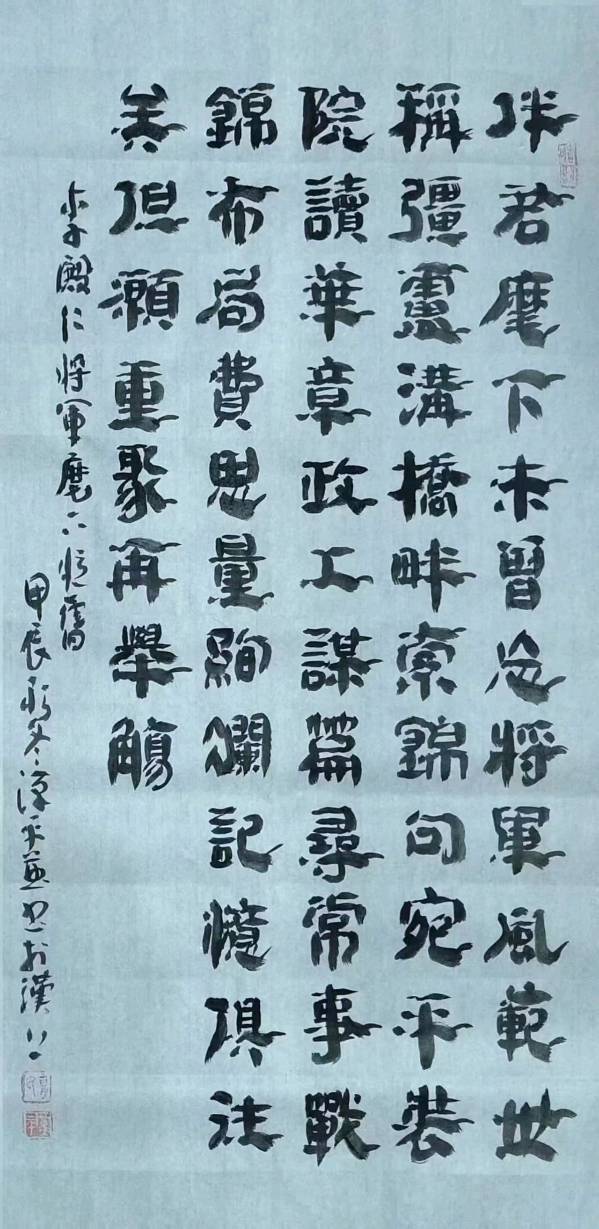 伴君麾下未曾忘将軍風範世
稱彊盧溝橋畔索錦句宛平裝
院讀華章政工謀篇尋常事戰
錦布局費思量絢爛記憶俱往
矣但願重聚再舉觴
李殿仁将軍麾下憶舊
甲辰初冬 書於漢上